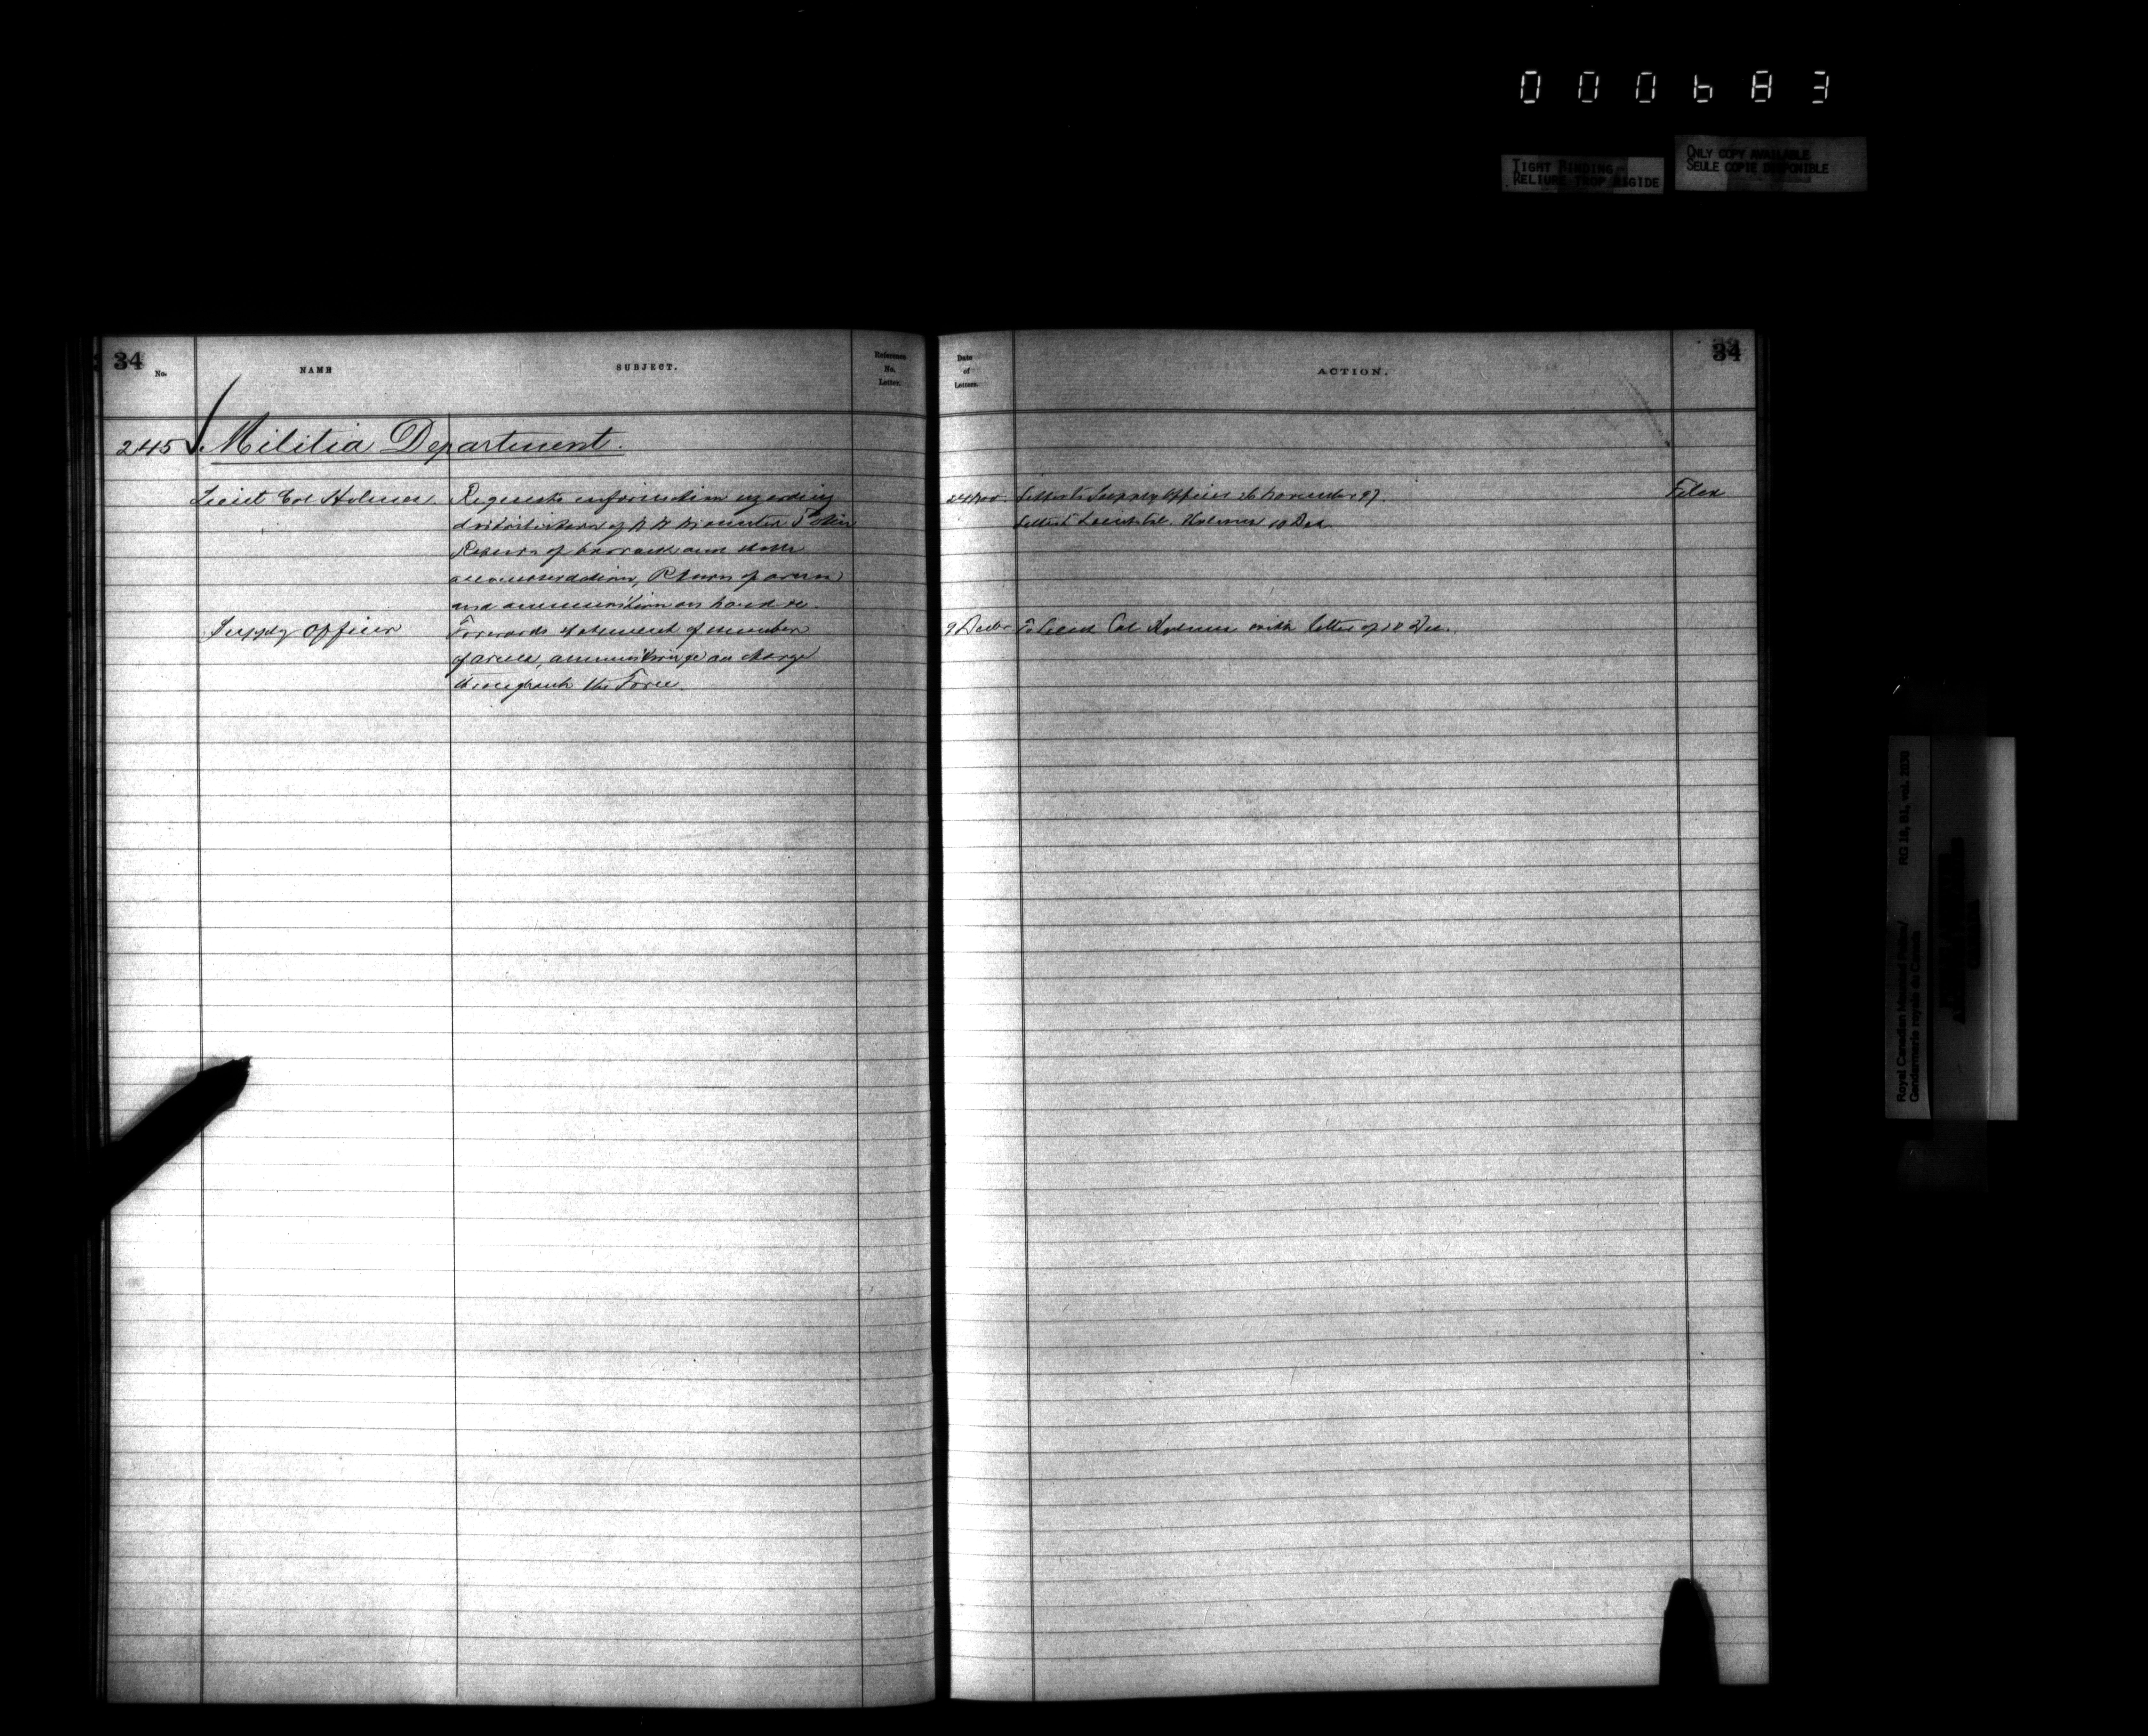 000683
TIGHT BINDING
RELIURE TROP RIGIDE
ONLY COPY AVAILABLE
SEULE COPIE DISPONIBLE
34
No.
NAME
SUBJECT.
Reference
No.
Letter.
Date
of
Letters.
ACTION.
34
245 Militia Department.
Lieut Col Holmes. Requests information regarding
distribution of N W Mounted Police
Returns of barrack and stable
accommodation, Return of arms
and ammunition on hand &c.
24 Nov. Letter to Supply Officer 26 November 97. Filed
Letter to Lieut Col. Holmes 10 Dec.
Supply Officer Forwards statement of number
of arms, ammunition &c on charge
throughout the Force.
9 Decbr To Lieut Col Holmes with letter of 10 Dec.
Royal Canadian Mounted Police/ RG 18, B1, vol. 2030
Gendarmerie royale du Canada